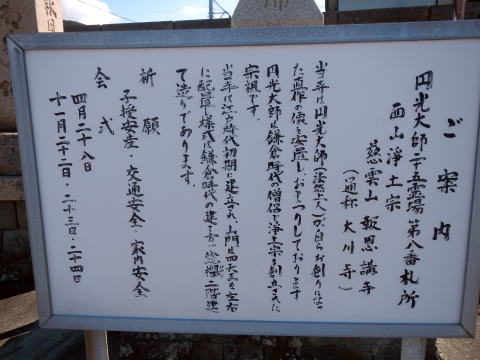 ご案内
円光大師二十五霊場 第八番札所
西山浄土宗
慈雲山 報恩講寺
(通称 大川寺)
当寺は円光大師(法然上人)が自らお創りになっ
た真作の像を安置しおまつりしております
円光大師は鎌倉時代の僧侶で浄土宗を創立された
宗祖です。
当寺は江戸時代初期に建立され、山門は四天王を左右
に配置し様式は鎌倉時代の建て方の総欅二階建
て造りであります。
祈願
子授安産・交通安全・家内安全
会式
四月二十八日
十一月二十二日・二十三日・二十四日